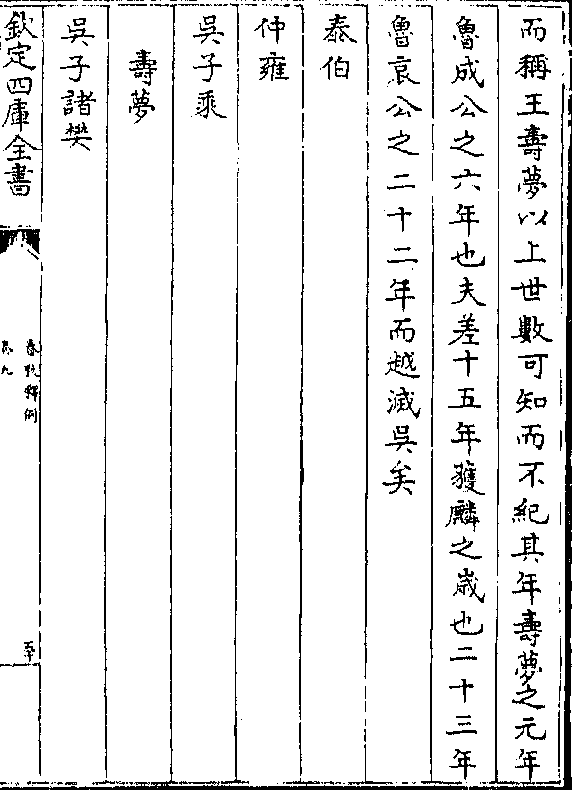 而稱王壽夢以上世數可知而不紀其年壽夢之元年
魯成公之六年也夫差十五年獲麟之歲也二十三年
魯哀公之二十二年而越滅吳矣
泰伯
仲雍
吳子乘
壽夢
吳子諸樊
欽定四庫全書
春秋釋例
卷九